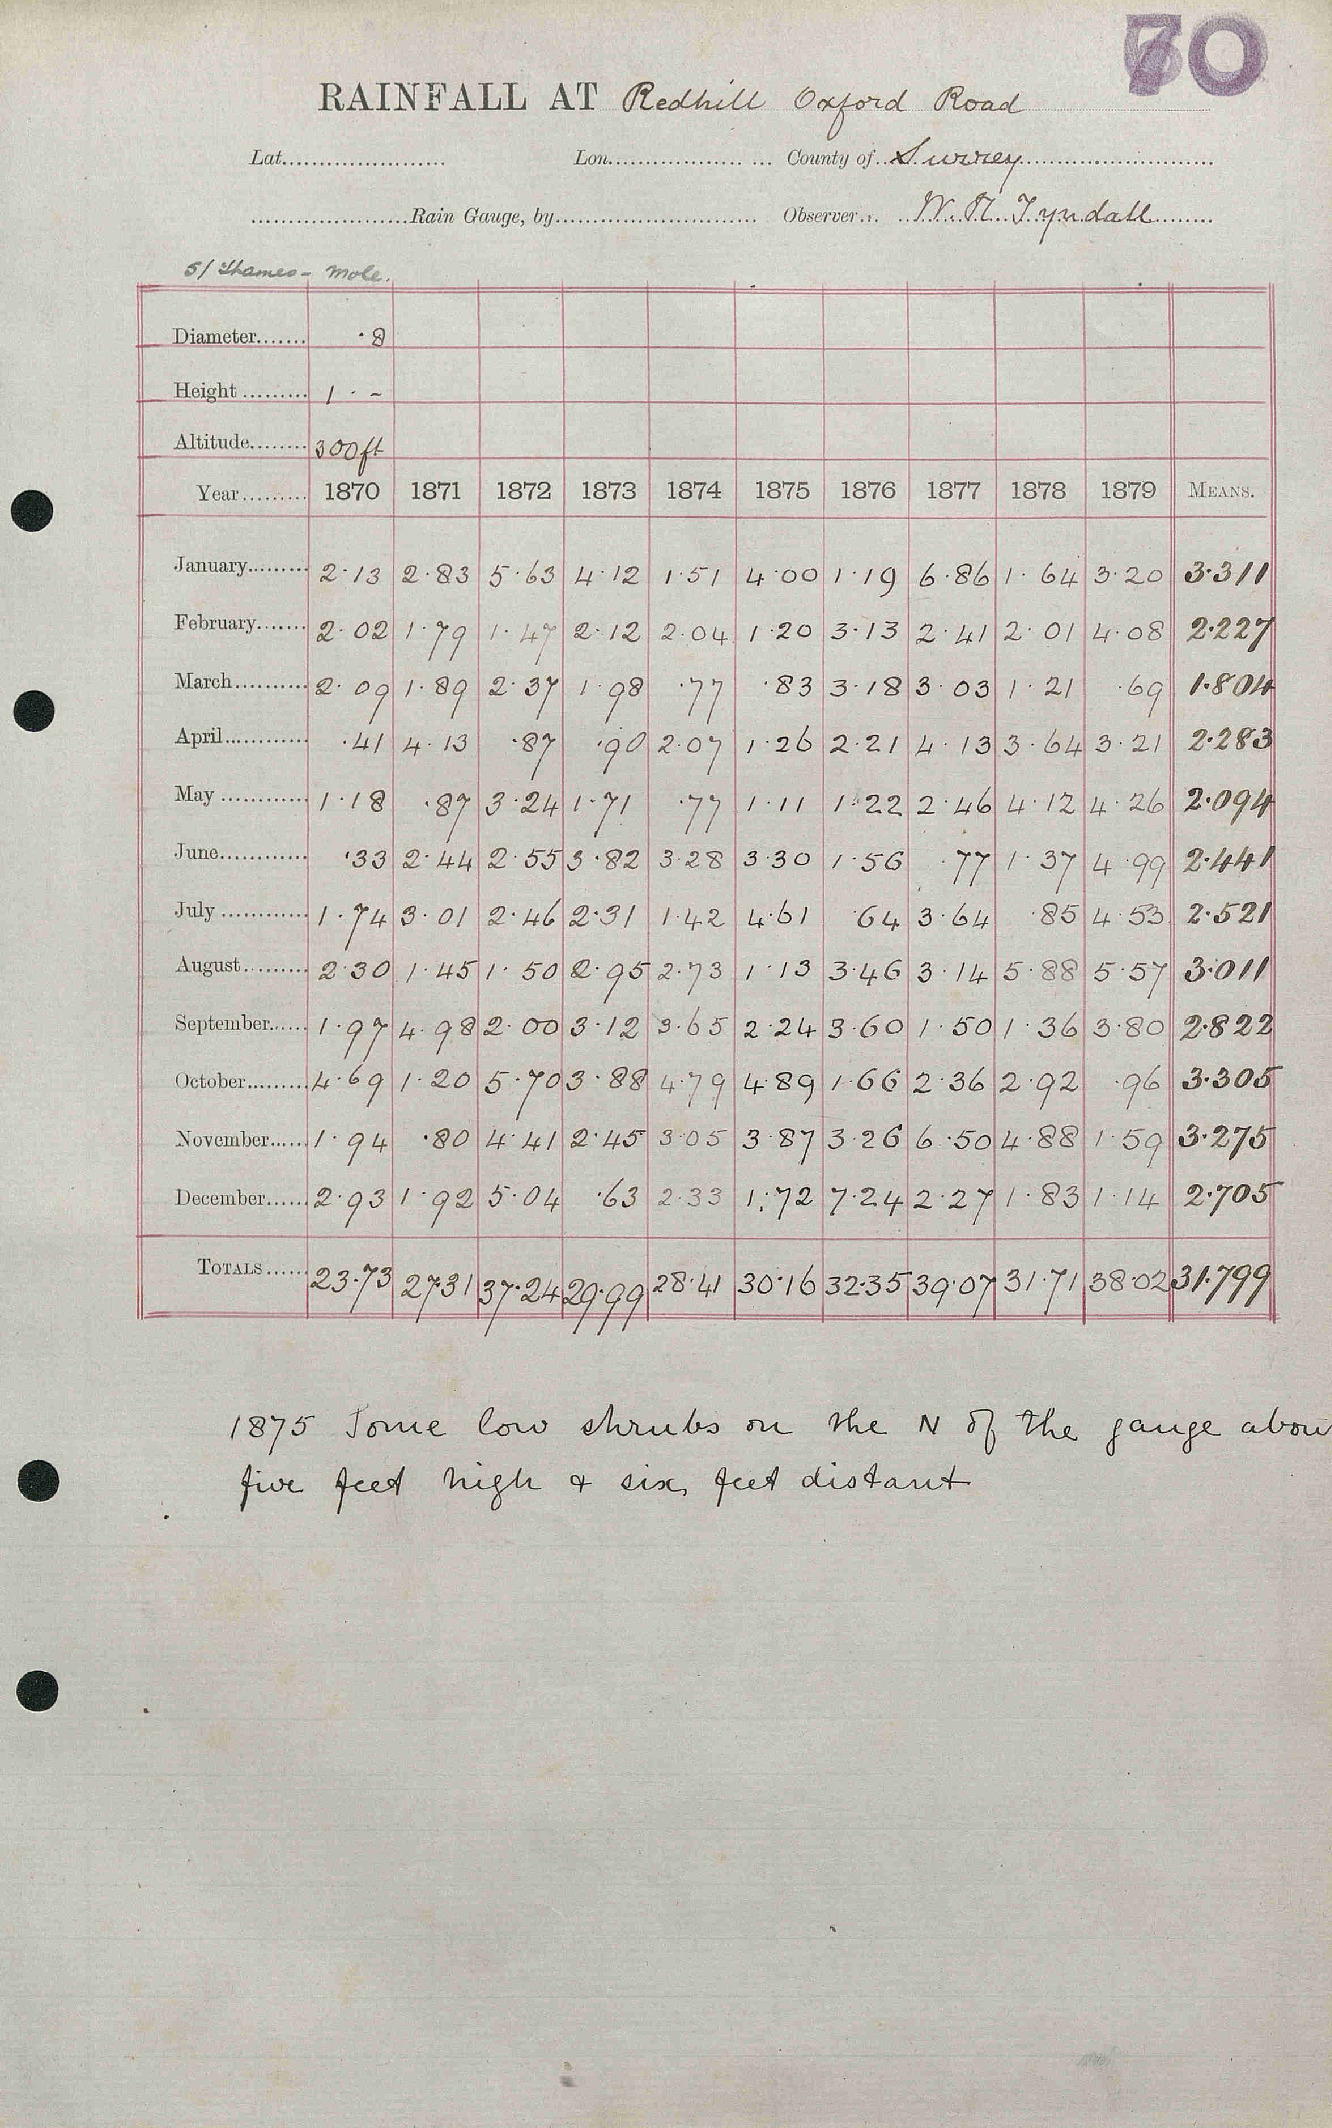 70
RAINFALL AT Redhill Oxford Road
Lat. Lon. County of Surrey
Rain Gauge, by Observer W. H. Tyndall
5/ Thames - Mole.
Diameter ·8
Height 1 · -
Altitude 300ft
Year 1870 1871 1872 1873 1874 1875 1876 1877 1878 1879 MEANS.
January 2·13 2·83 5·63 4·12 1·51 4·00 1·19 6·86 1·64 3·20 3·311
February 2·02 1·79 1·47 2·12 2·04 1·20 3·13 2·41 2·01 4·08 2·227
March 2·09 1·89 2·37 1·98 ·77 ·83 3·18 3·03 1·21 ·69 1·804
April ·41 4·13 ·87 ·90 2·07 1·26 2·21 4·13 3·64 3·21 2·283
May 1·18 ·87 3·24 1·71 ·77 1·11 1·22 2·46 4·12 4·26 2·094
June ·33 2·44 2·55 3·82 3·28 3·30 1·56 ·77 1·37 4·99 2·441
July 1·74 3·01 2·46 2·31 1·42 4·61 ·64 3·64 ·85 4·53 2·521
August 2·30 1·45 1·50 2·95 2·73 1·13 3·46 3·14 5·88 5·57 3·011
September 1·97 4·98 2·00 3·12 3·65 2·24 3·60 1·50 1·36 3·80 2·822
October 4·69 1·20 5·70 3·88 4·79 4·89 1·66 2·36 2·92 ·96 3·305
November 1·94 ·80 4·41 2·45 3·05 3·87 3·26 6·50 4·88 1·59 3·275
December 2·93 1·92 5·04 ·63 2·33 1·72 7·24 2·27 1·83 1·14 2·705
TOTALS 23·73 27·31 37·24 29·99 28·41 30·16 32·35 39·07 31·71 38·02 31·799
1875 Some low shrubs on the N of the gauge abou
five feet high & six feet distant